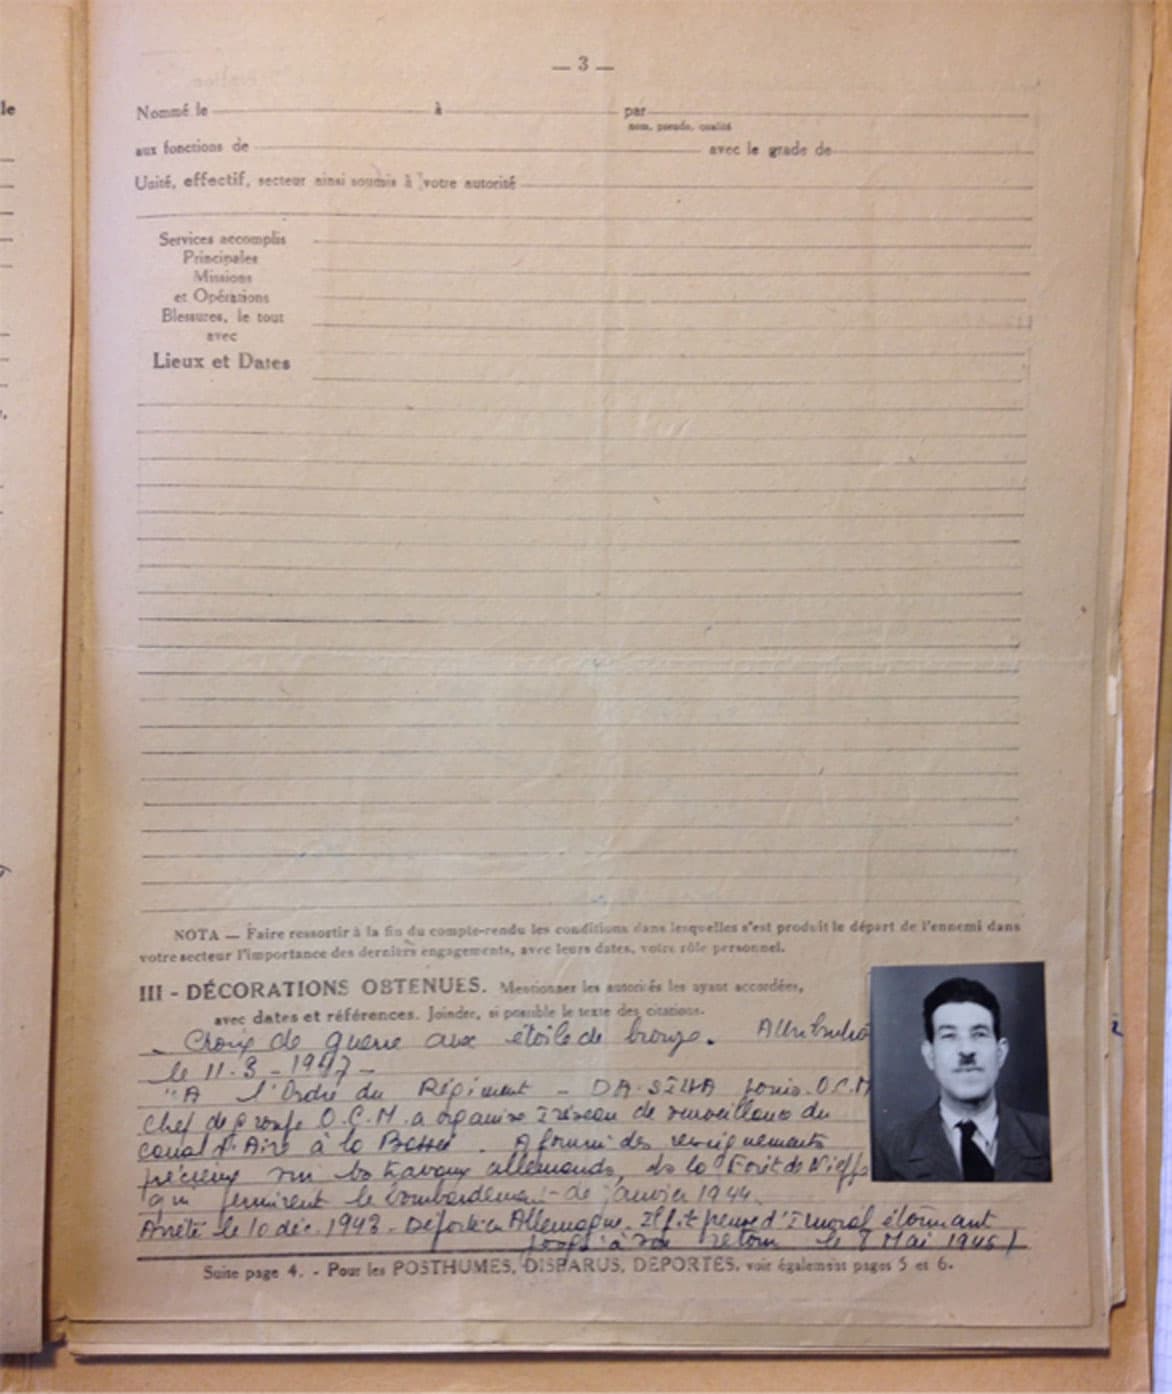 le
— 3 —
Nommé le à par
nom, pseudo, qualité
aux fonctions de avec le grade de
Unité, effectif, secteur ainsi soumis à votre autorité
Services accomplis
Principales
Missions
et Opérations
Blessures, le tout
avec
Lieux et Dates
NOTA — Faire ressortir à la fin du compte-rendu les conditions dans lesquelles s'est produit le départ de l'ennemi dans
votre secteur l'importance des derniers engagements, avec leurs dates, votre rôle personnel.
III - DÉCORATIONS OBTENUES. Mentionner les autorités les ayant accordées,
avec dates et références. Joindre, si possible le texte des citations.
Croix de guerre avec étoile de bronze. Attribuée
le 11-3-1947 -
"A l'Ordre du Régiment - DA-SILVA Louis. O.C.M
Chef de groupe O.C.M. a organisé réseau de surveillance du
canal d'Aire à la Bassée. A fourni des renseignements
précieux sur les travaux allemands, de la Forêt de Nieppe
qui permirent le bombardement de janvier 1944.
Arrêté le 10 déc. 1943 - Déporté en Allemagne. Il fit preuve d'1 moral étonnant
jusqu'à son retour le 8 Mai 1945
Suite page 4. - Pour les POSTHUMES, DISPARUS, DEPORTES, voir également pages 5 et 6.